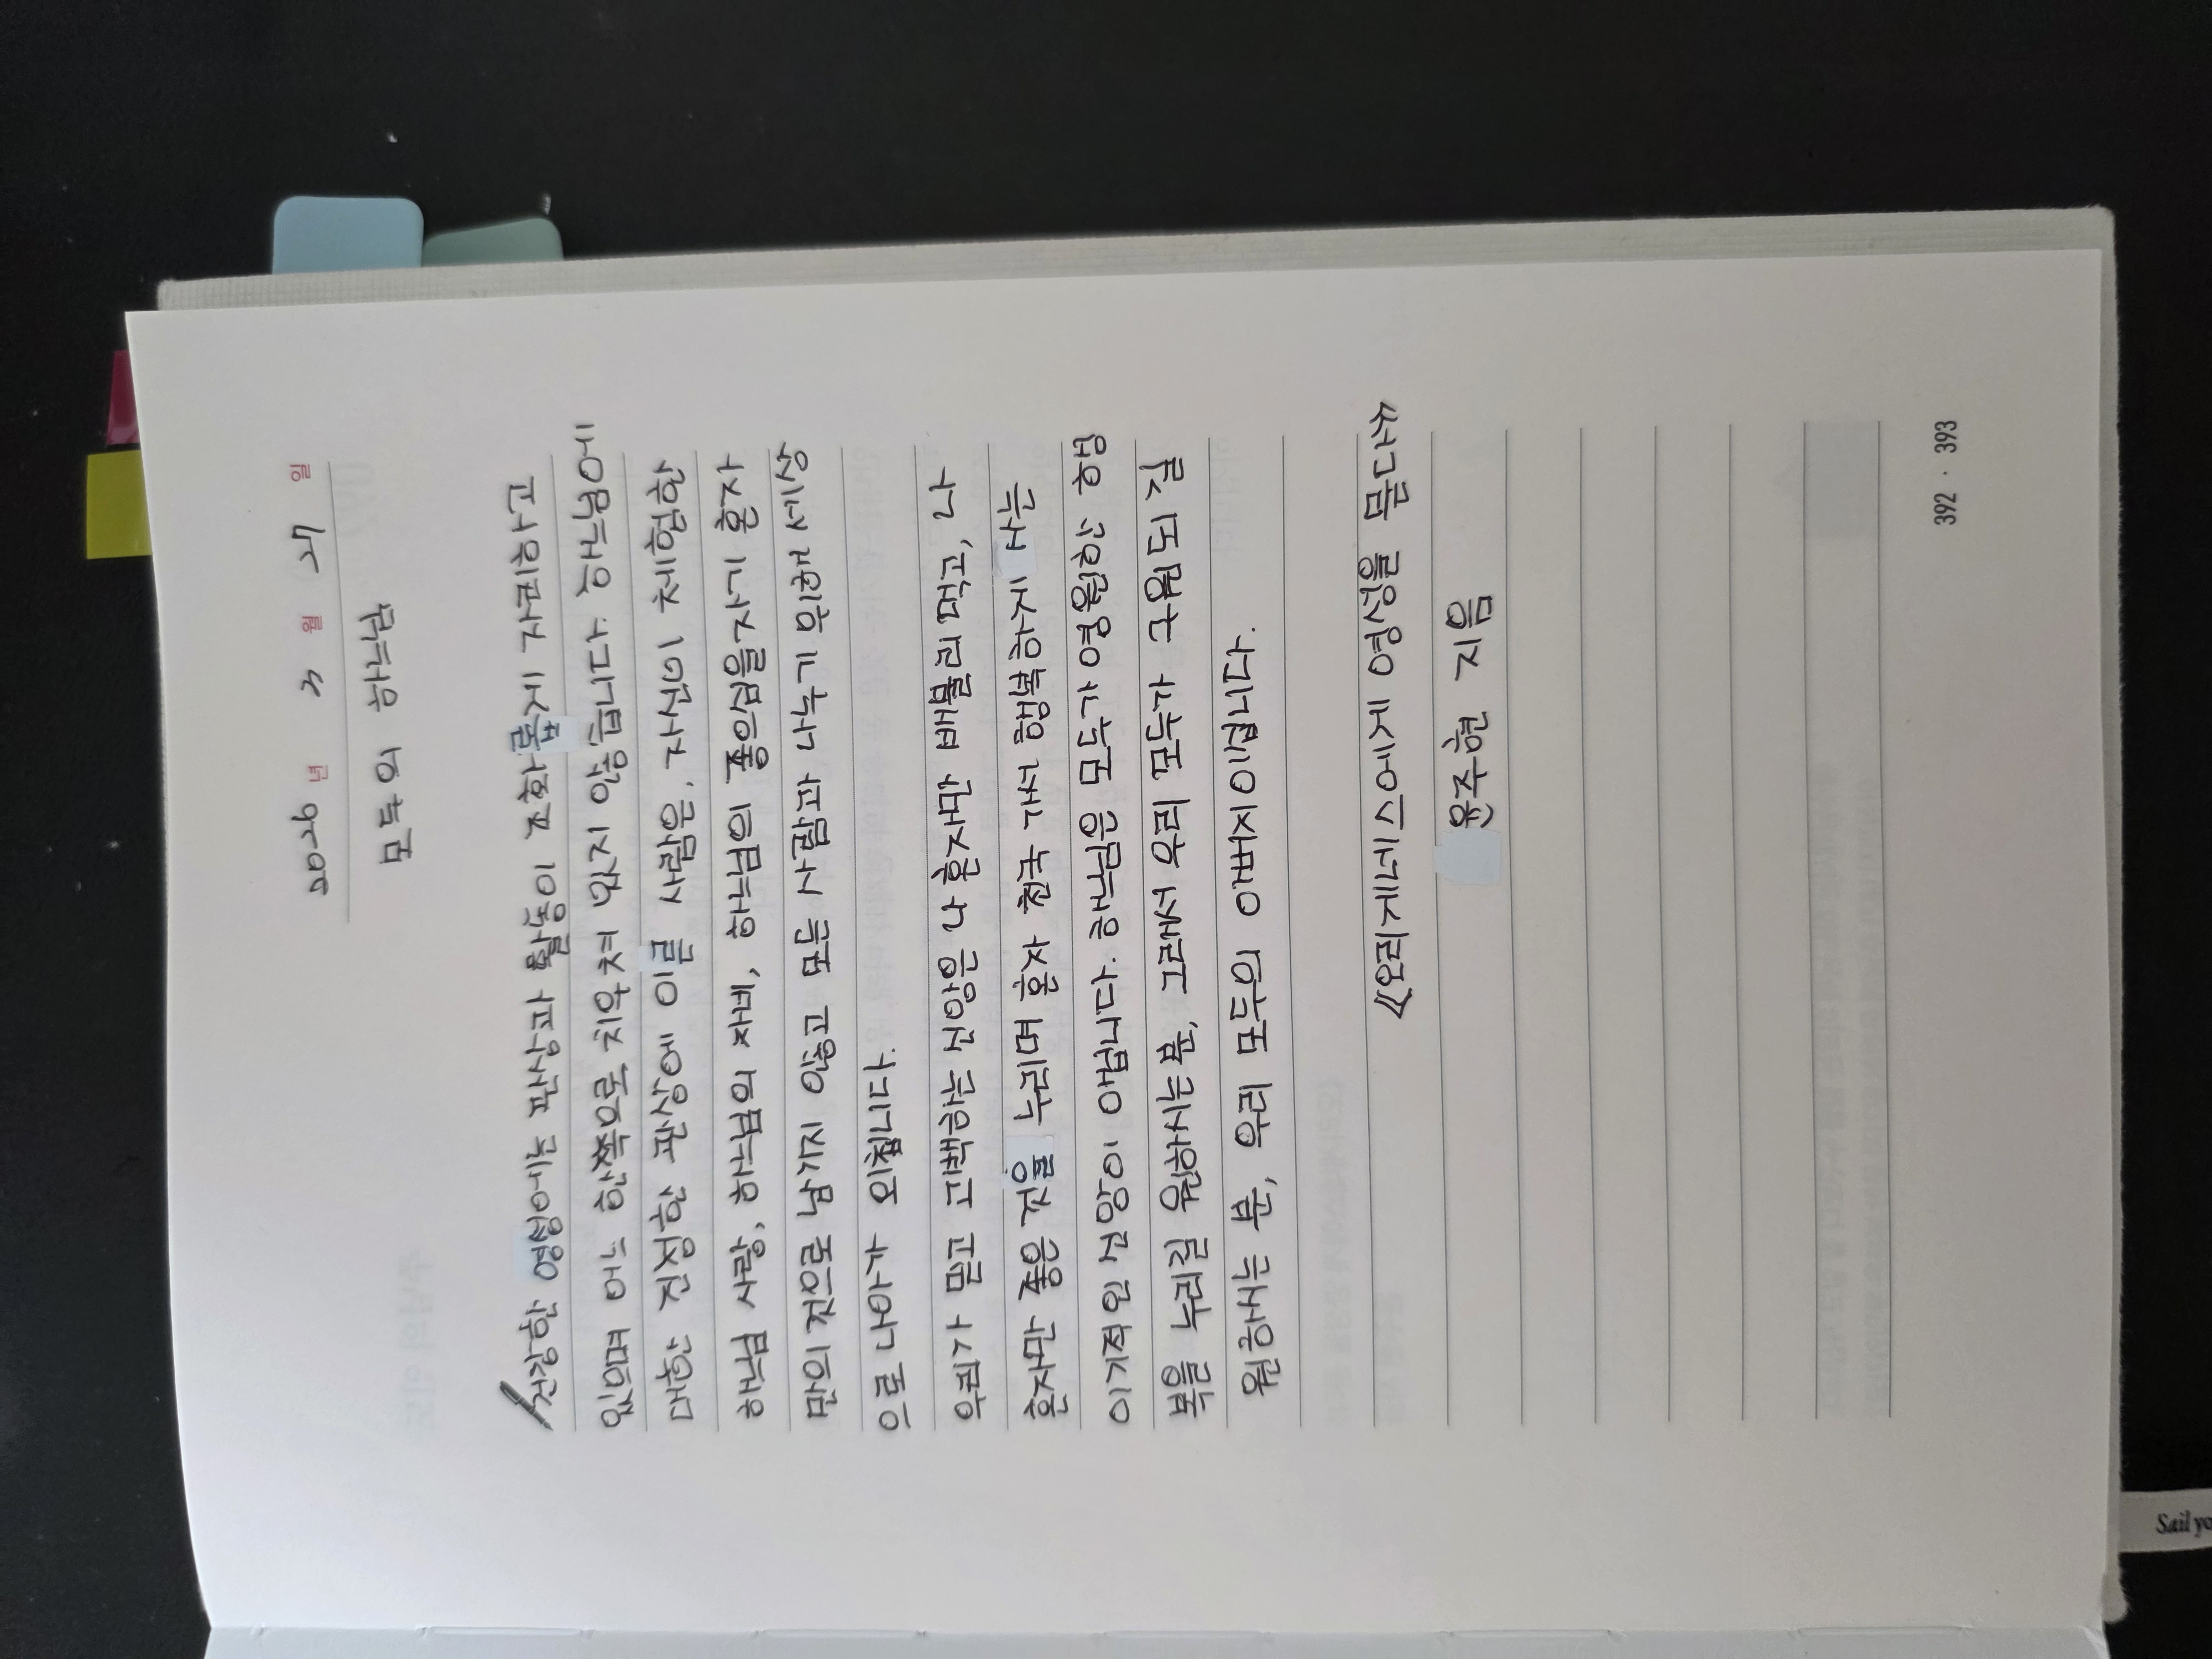 2026 년 3 월 27 일
모두의 하느님
건강한 영성에는 관상과 활동이 조화롭게 자리하고
있으며 어느 한쪽으로 치우쳐 있지 않습니다. 하느님에
대한 진정한 관상에 이른 사람은, 자신이 체험한
하느님 사랑, 하느님의 자비, 하느님의 좋으심을 자기 혼자
만의 것으로 남기지 않고 모든 사람과 나누기 위해 세상
으로 나아가 외칩니다.
우리가 믿고 고백하는 신앙은 나 혼자만 배불리 먹고, 나
혼자만 좋은 것을 누리며 혼자 천국 가서 행복하게 사는
이기적인 신앙이 아닙니다. 하느님은 모두가 영원한 생명
복을 누리길 원하시는 분, 그래서 우리 모두가 구원되기를
원하시는 분, 우리 모두의 아버지이십니다.
《오리게네스에게 영성을 묻다》
윤주현 지음
392 · 393
Sail yo